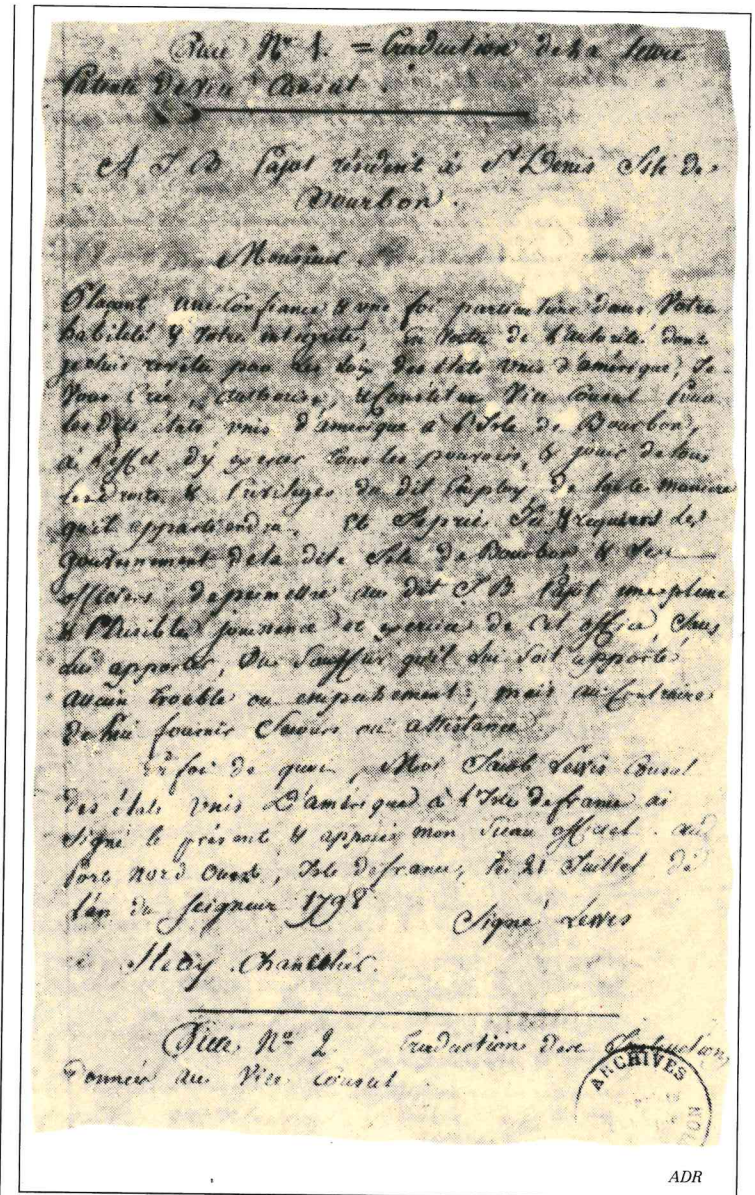 Piece Nº 1. = traduction de la Lettre
Patente de vice Consul.
A J B Pajot résident à St Denis Isle de
Bourbon.
Monsieur
Plaçant une Confiance & une foi particuliere dans votre
habileté & votre intégrité, en vertu de l'autorité dont
je suis revêtu par les loix des états unis d'amérique, Je
vous Crée, authorise, & Constitue Vice Consul pour
les dits états unis d'amerique a l'Isle de Bourbon,
à l'effet d'y exercer tous les pouvoirs, & jouir de tous
les droits & Privileges du dit Employ, de toute maniere
qu'il appartiendra. Et Je prie & requiers le
gouvernement de la dite Isle de Bourbon & ses
officiers, de permettre au dit J B Pajot une pleine
& Paisible jouissance & exercice de cet office Sans
lui apporter, ou Souffrir qu'il lui soit apporté
aucun trouble ou empechement; mais au Contraire
de lui fournir Secours ou assistance
En foi de quoi, Moi Jacob Lewis Consul
des états unis D'amérique à l'Isle de france ai
signé le présent & apposé mon Sceau officiel. au
Port nord Ouest, Isle de france, le 21 Juillet de
l'an du Seigneur 1798
Signé Lewis
Chancelier.
Piece Nº 2. traduction des Instructions
Données au Vice Consul
ARCHIVES
ADR